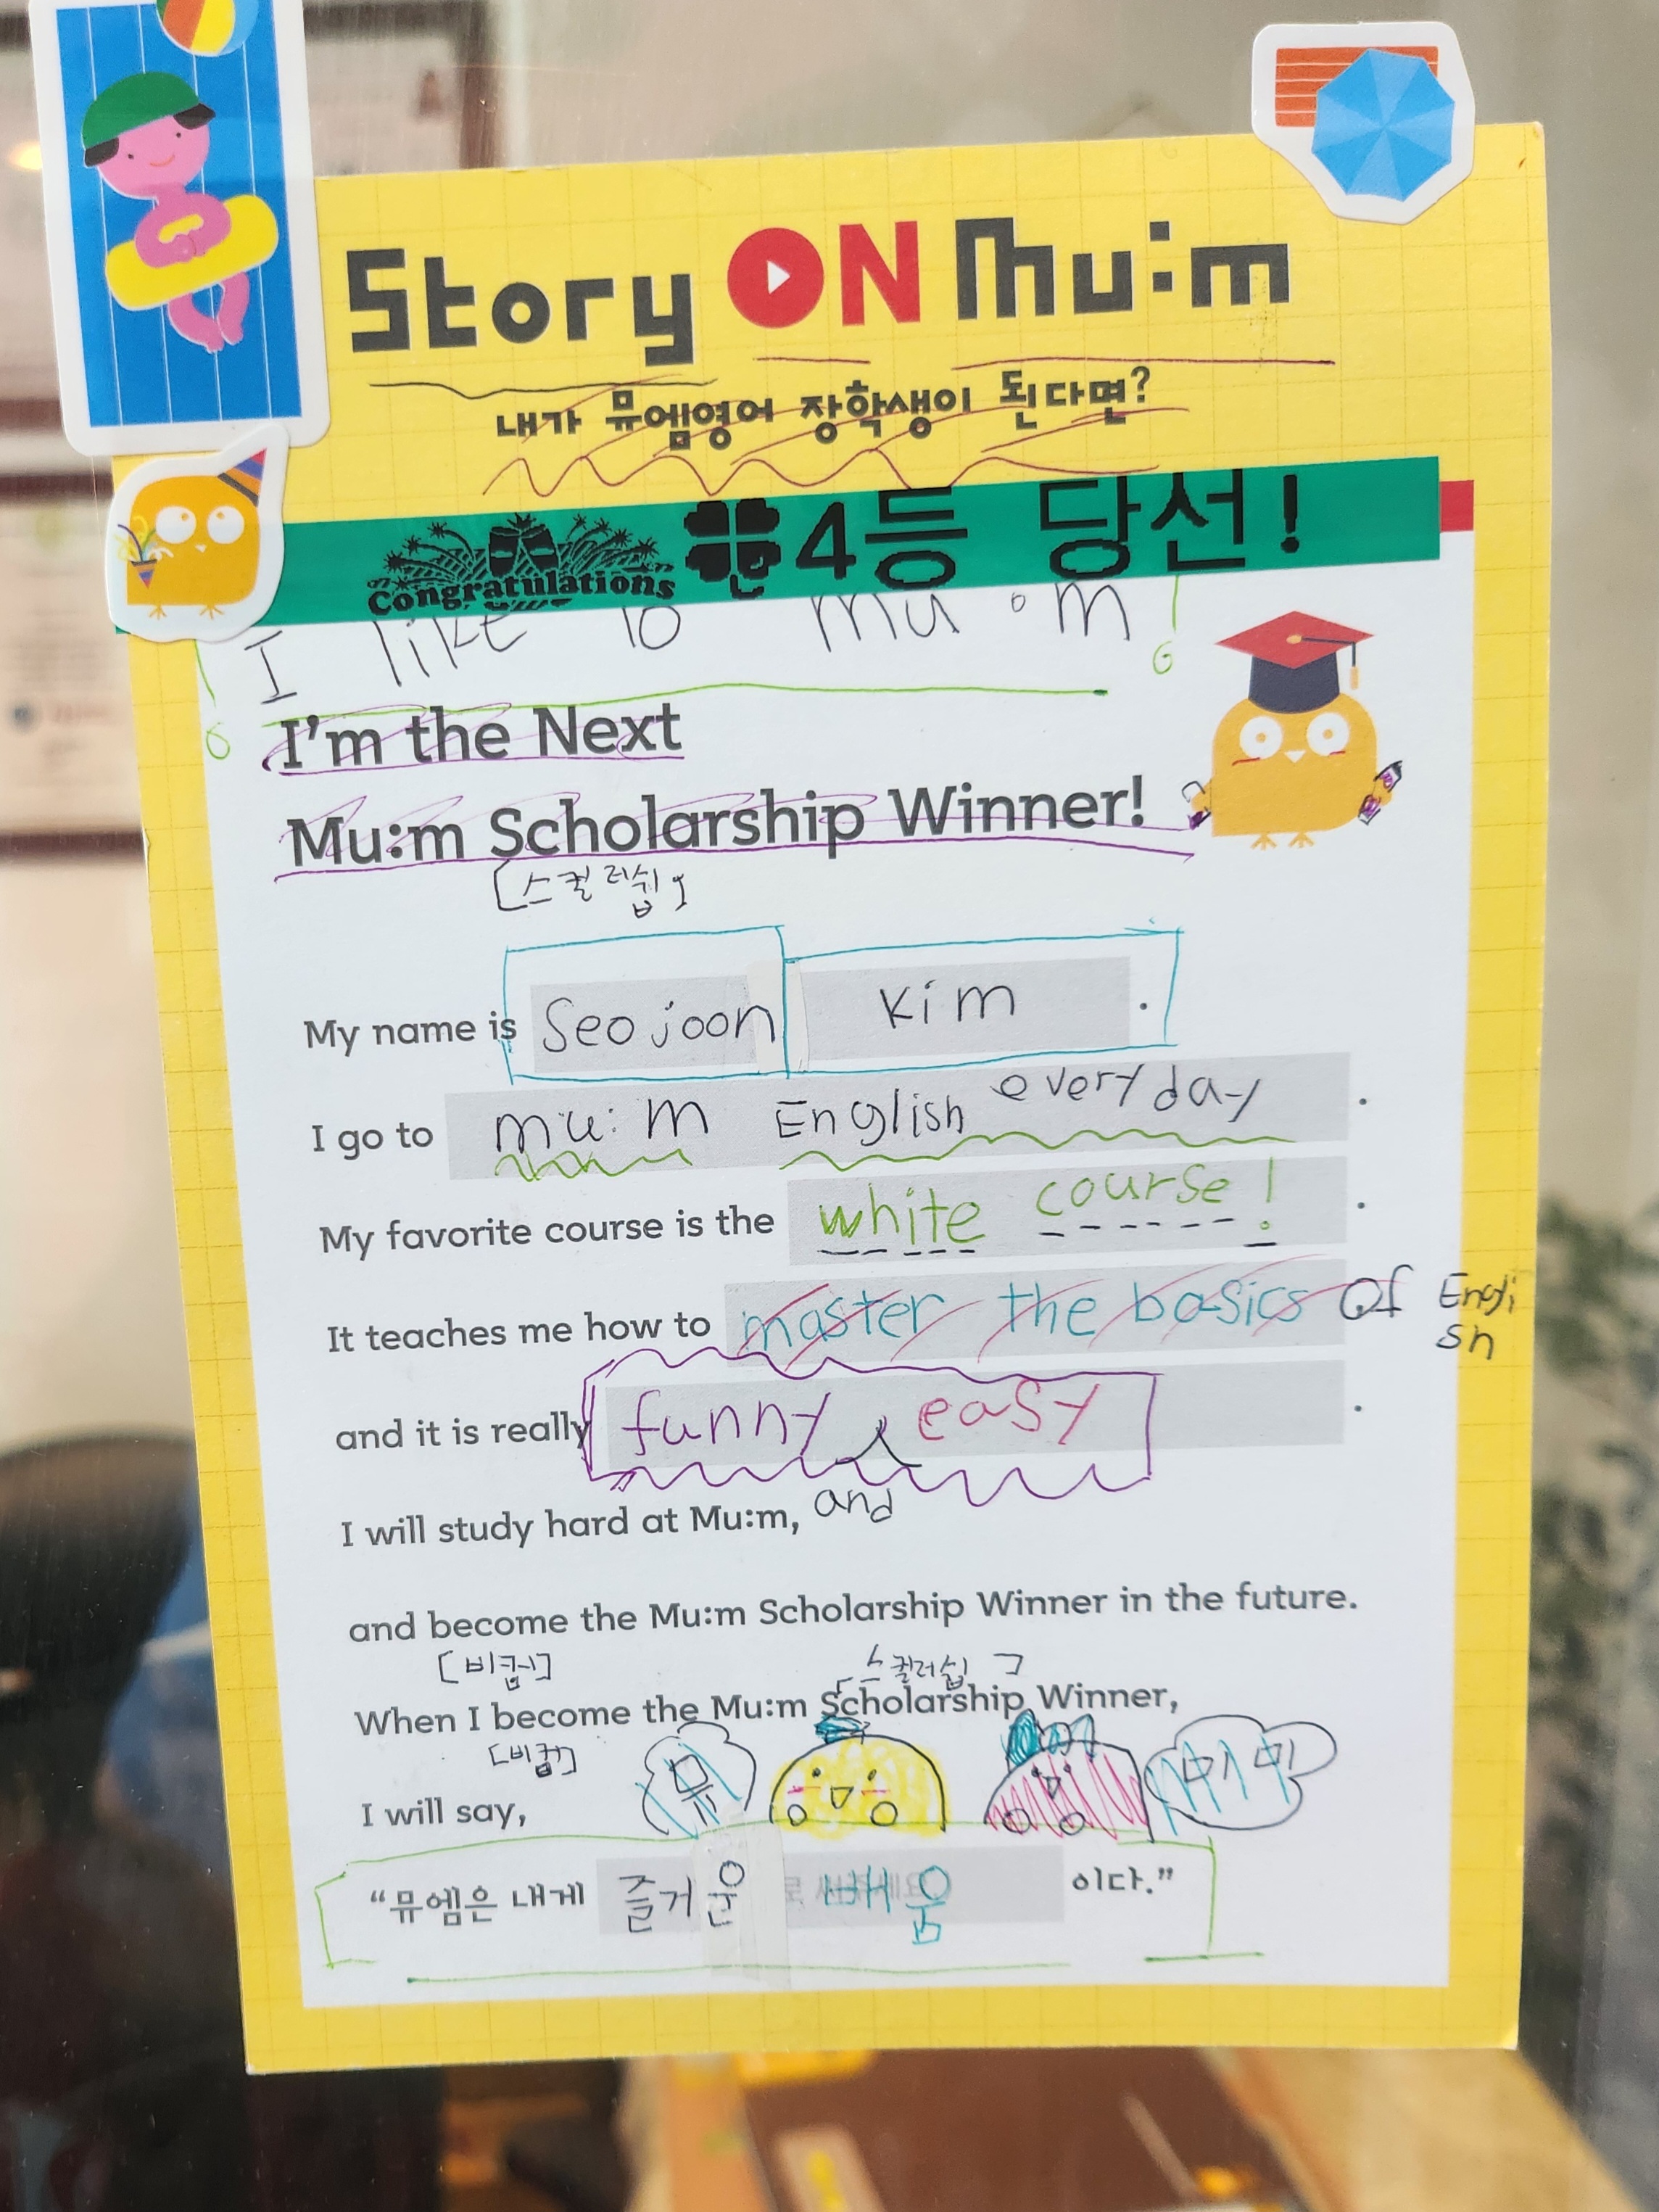 Story ON Mu:m
내가 뮤엠영어 장학생이 된다면?
Congratulations 4등 당선!
I like to mu:m!
I'm the Next
Mu:m Scholarship Winner!
[스컬러쉽]
My name is Seojoon Kim.
I go to mu:m English everyday.
My favorite course is the white course!.
It teaches me how to master the basics Of English
and it is really funny easy.
and
I will study hard at Mu:m,
and become the Mu:m Scholarship Winner in the future.
[비컴] [스컬러쉽]
When I become the Mu:m Scholarship Winner,
[비컴]
I will say,
뮤
“뮤엠은 내게 즐거운 배움 이다.”